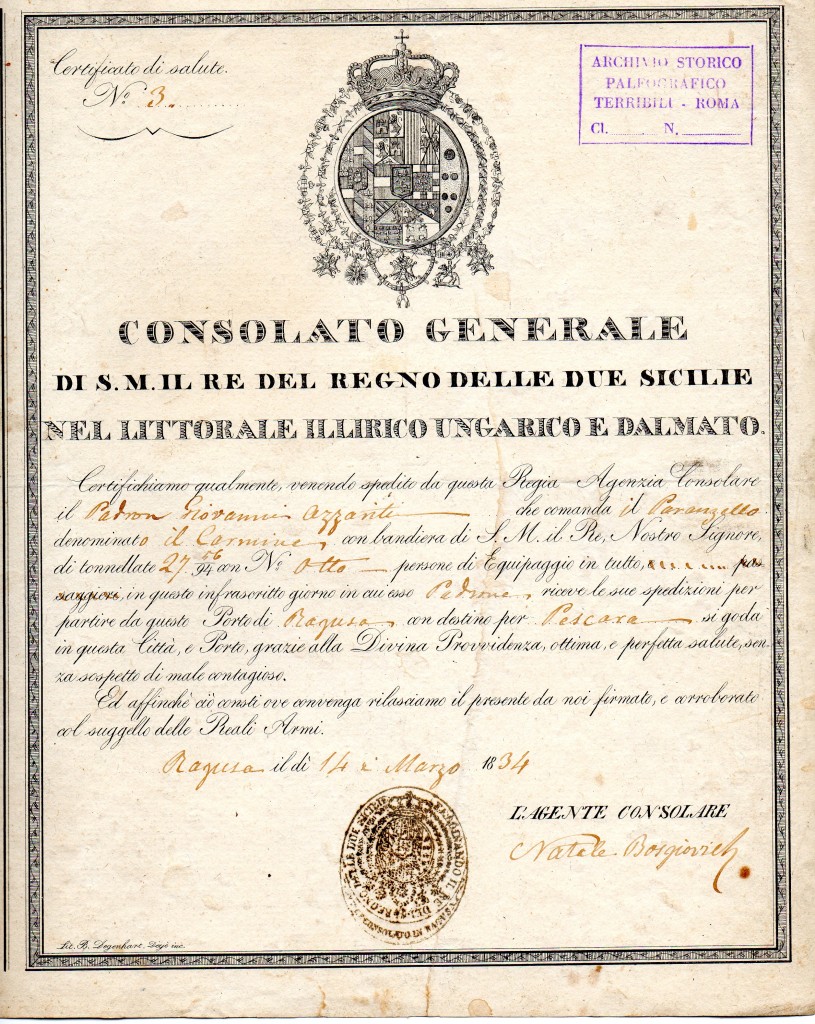 Certificato di salute.
N.º 3.
ARCHIVIO STORICO
PALEOGRAFICO
TERRIBILI - ROMA
Cl. N.
CONSOLATO GENERALE
DI S. M. IL RE DEL REGNO DELLE DUE SICILIE
NEL LITTORALE ILLIRICO UNGARICO E DALMATO.
Certifichiamo qualmente, venendo spedito da questa Regia Agenzia Consolare
il Padron Giovanni Azzariti che comanda il Paranzello
denominato il Carmine, con bandiera di S. M. il Re, Nostro Signore,
di tonnellate 27 56/94 con N.º Otto persone di Equipaggio in tutto, pas-
saggieri, in questo infrascritto giorno in cui esso Padrone, riceve le sue spedizioni per
partire da questo Porto di Ragusa con destino per Pescara si goda
in questa Città, e Porto, grazie alla Divina Provvidenza, ottima, e perfetta salute, sen-
za sospetto di male contagioso.
Ed affinchè ciò consti ove convenga rilasciamo il presente da noi firmato, e corroborato
col suggello delle Reali Armi.
Ragusa il dì 14 Marzo 1834
L'AGENTE CONSOLARE
Natale Bosgiovich
FERDINANDO II. RE DEL REGNO DELLE DUE SICILIE
CONSOLATO IN RAGUSA
Lit. B. Degenhart, Deyè inc.